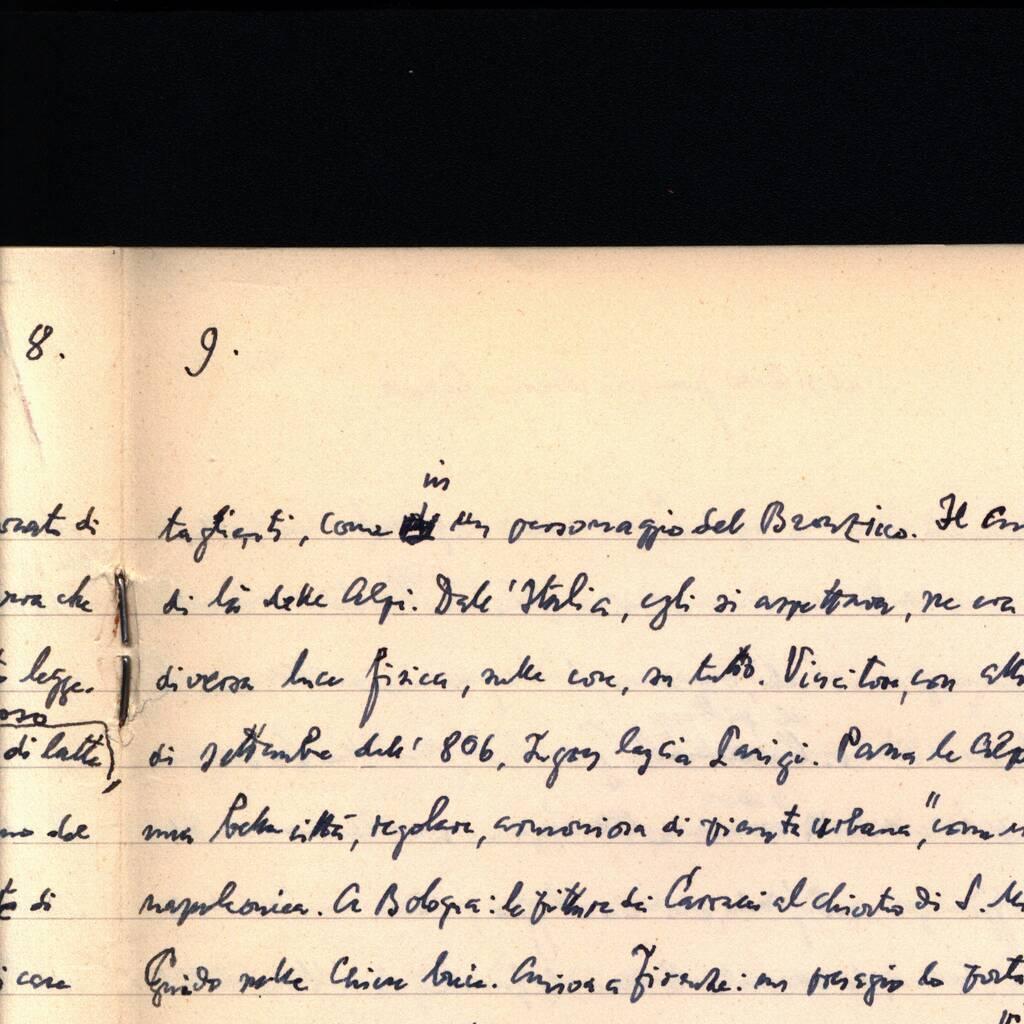 8.
di
che
legge.
di latte
di
cose
9.
in
taglienti, come un personaggio del Bronzino. Il
di là delle Alpi. Dall'Italia, egli si aspettava, ne era
diversa luce fisica, sulle cose, su tutto. Vincitore, con
di settembre dell'806, Ingres lascia Parigi. Passa le Alpi
una bella città, regolare, armoniosa di pianta urbana," come
napoleonica. A Bologna: le pitture dei Carracci al chiostro di S.
Guido nelle Chiese buie. Arriva a Firenze: un presagio lo